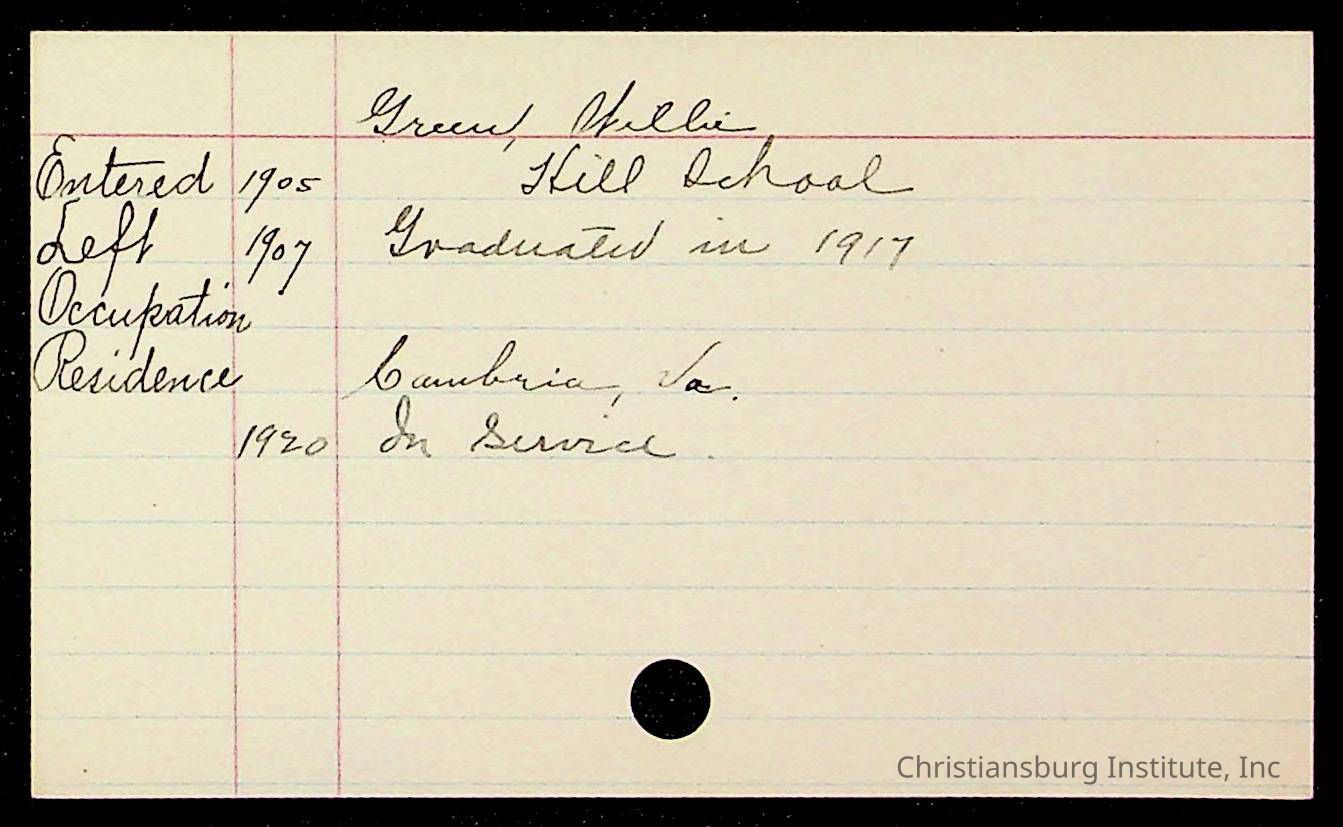 Green, Willie
Entered 1905 Hill School
Left 1907 Graduated in 1917
Occupation
Residence Cambria, Va.
1920 In Service.
Christiansburg Institute, Inc